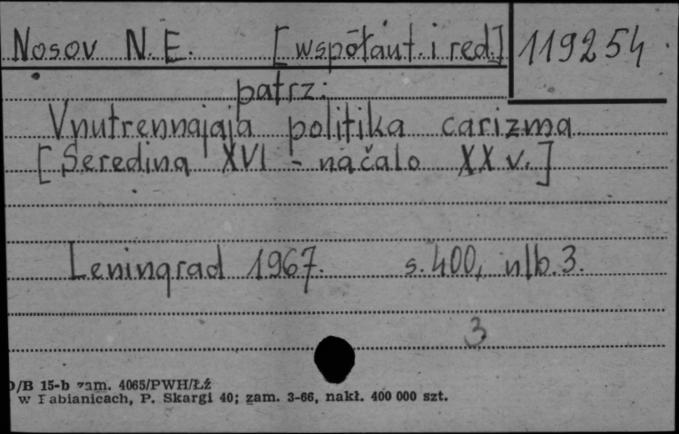 Nosov N.E. [współaut. i red.] 119254
patrz:
Vnutrennajaja politika carizma
[Seredina XVI - načalo XX v.]
Leningrad 1967. s. 400, nlb. 3.
3
/B 15-b zam. 4065/PWH/Łź
w Pabianicach, P. Skargi 40; zam. 3-66, nakł. 400 000 szt.